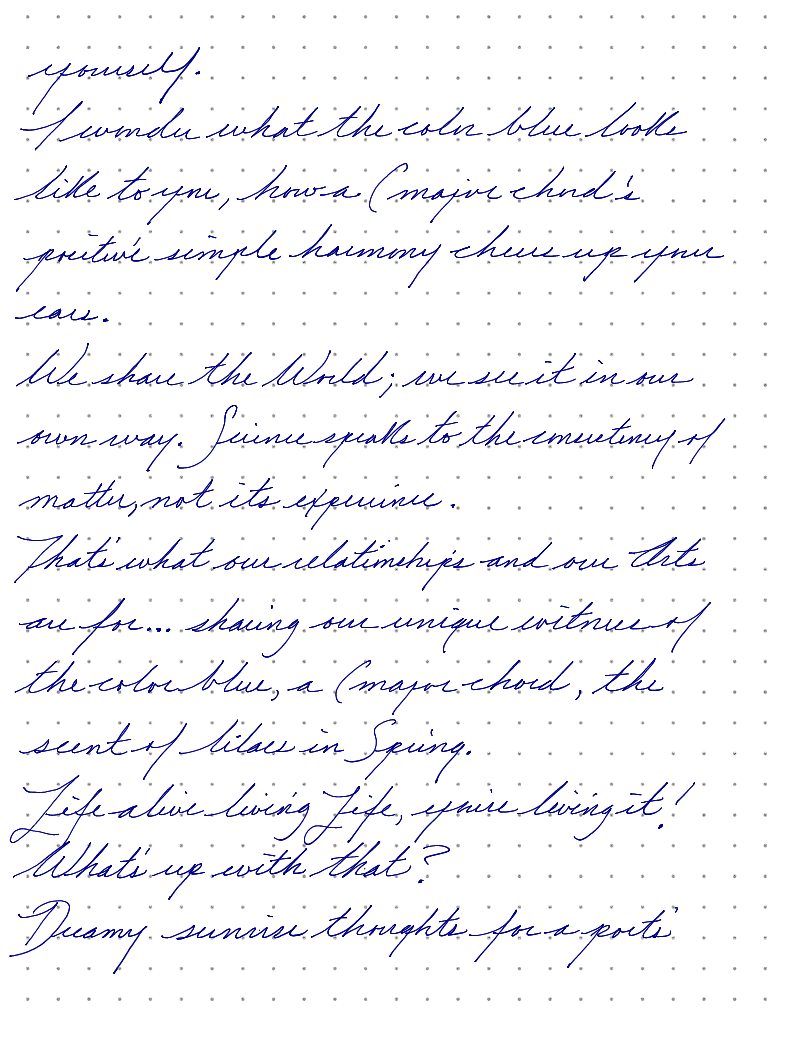 yourself.
I wonder what the color blue looks
like to you, how a C major chord's
positive simple harmony cheers up your
ears.
We share the World; we see it in our
own way. Science speaks to the consistency of
matter, not its experience.
That's what our relationships and our Arts
are for... sharing our unique witness of
the color blue, a C major chord, the
scent of lilacs in Spring.
Life alive living Life, you're living it!
What's up with that?
Dreamy sunrise thoughts for a poet's